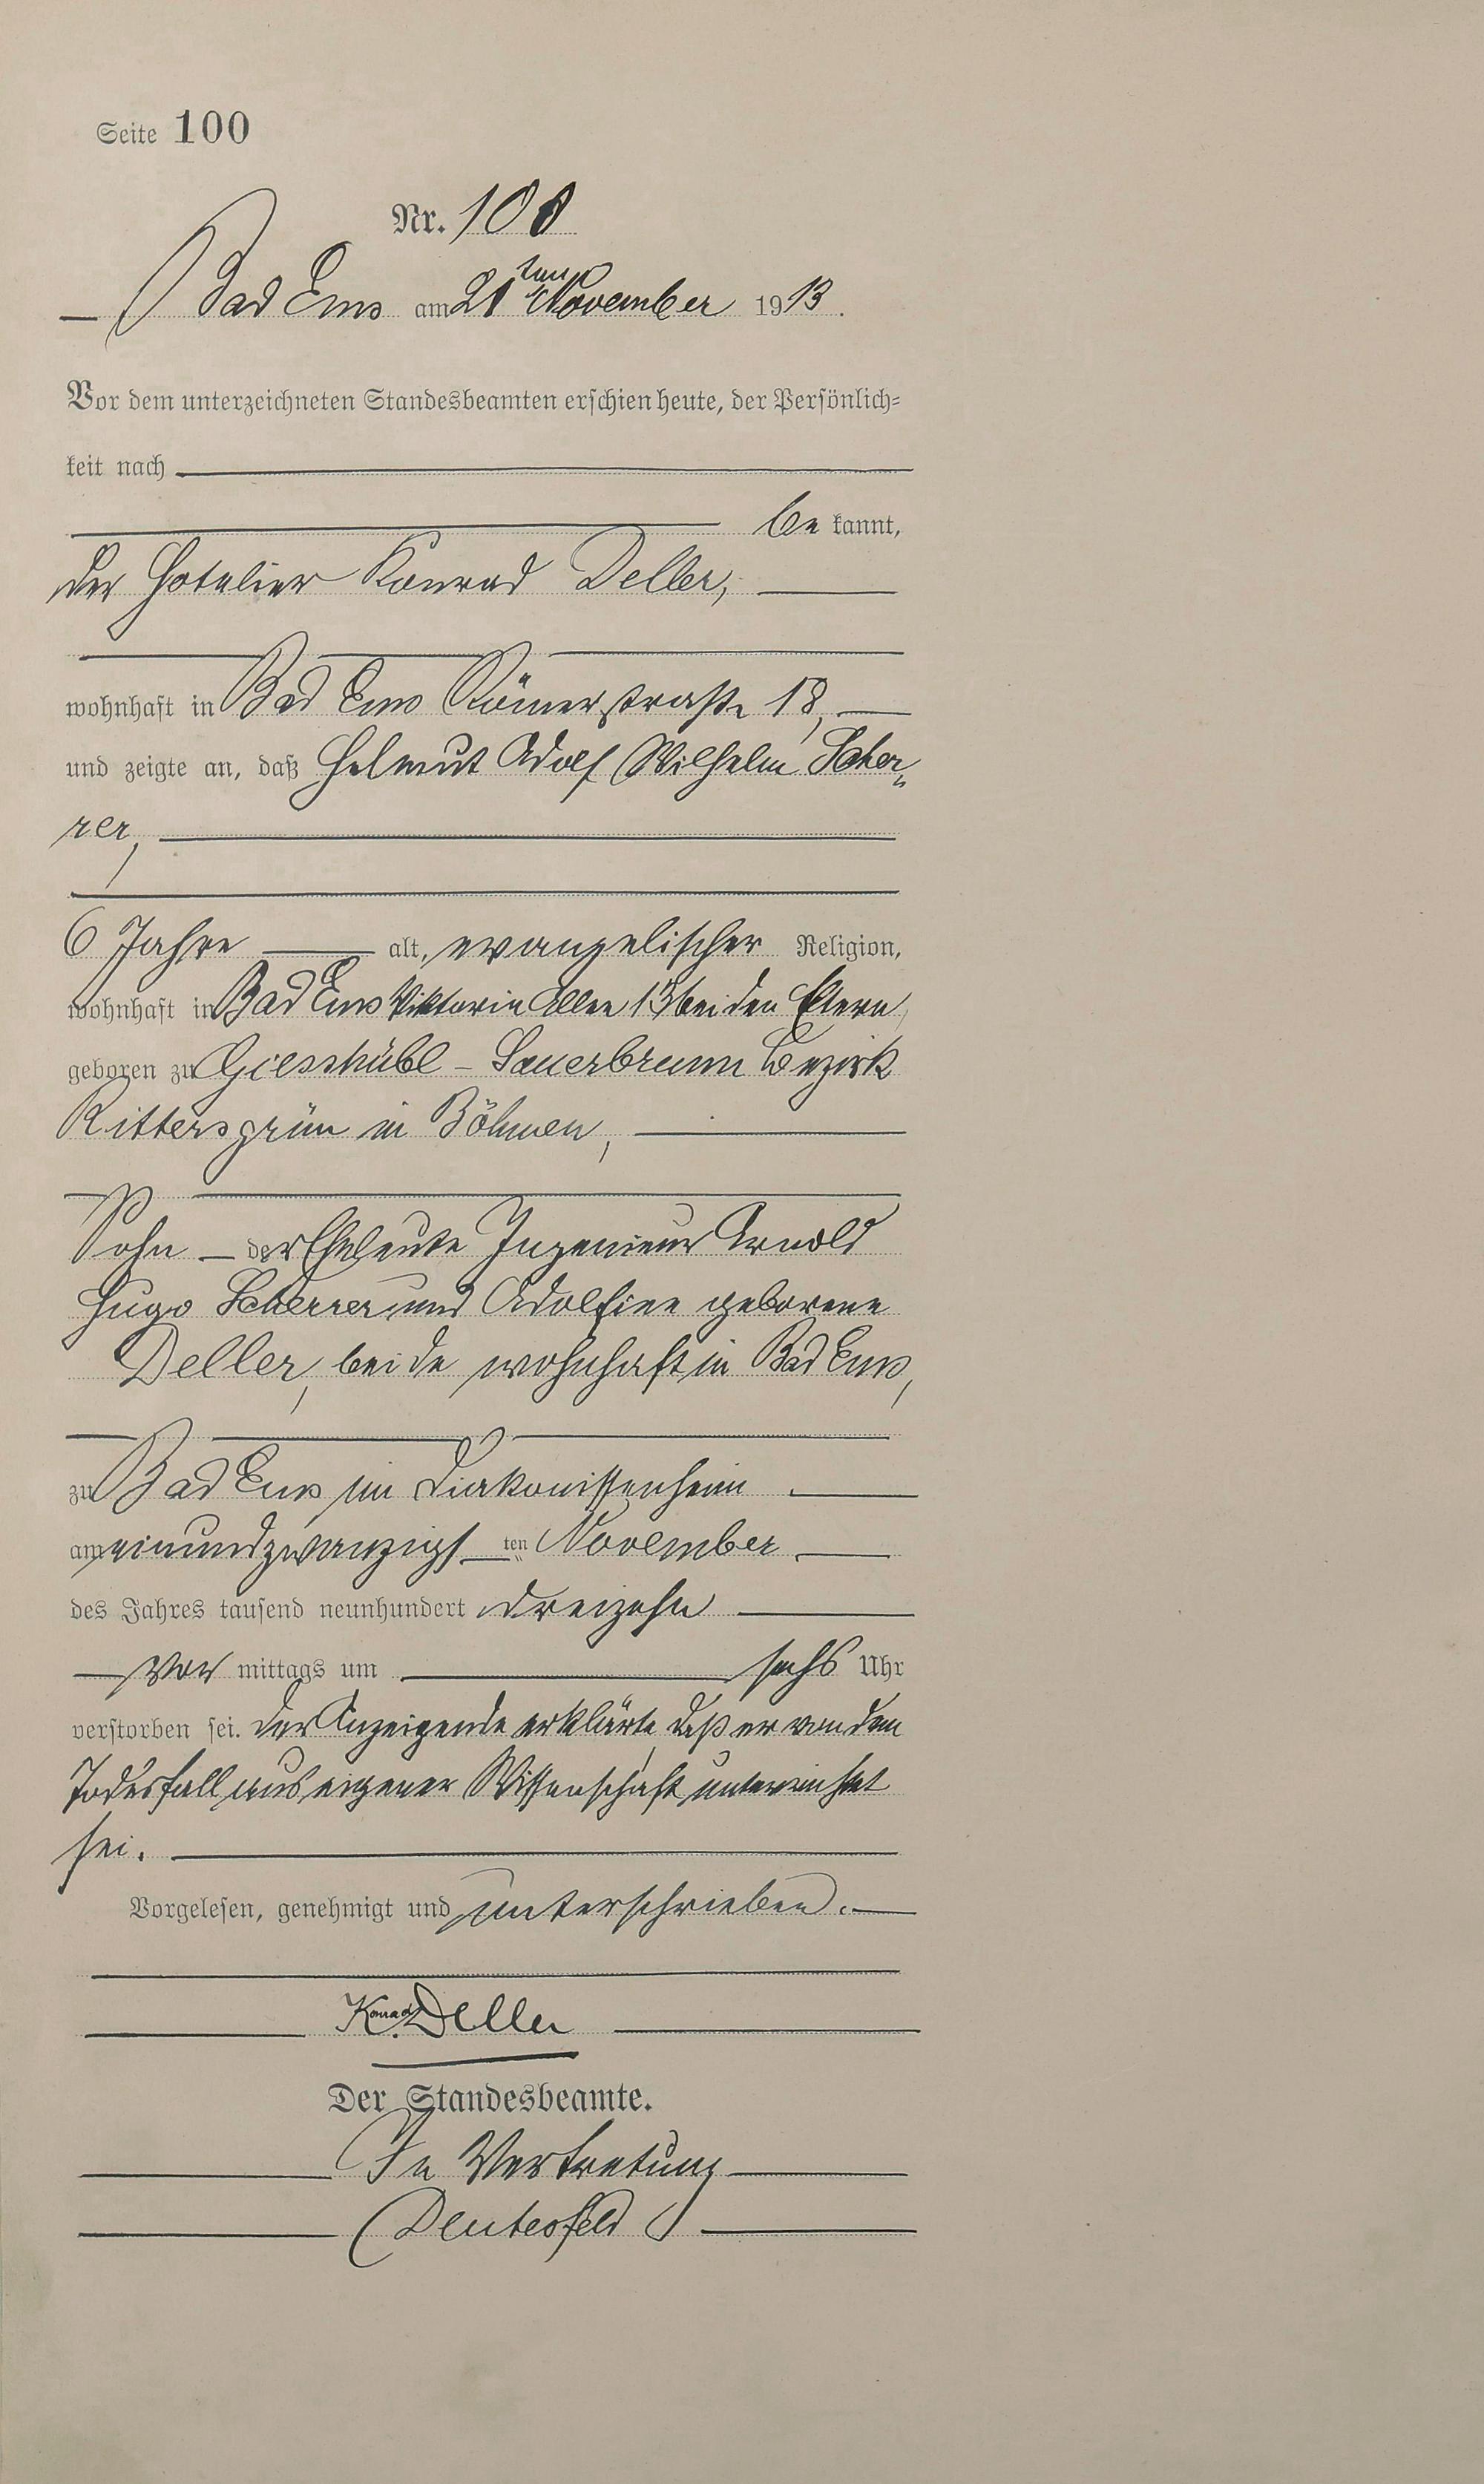 Seite 100
Nr. 100
Bad Ems am 21ten November 1913.
Vor dem unterzeichneten Standesbeamten erschien heute, der Persönlich-
keit nach
be kannt,
der Hotelier Konrad Deller,
wohnhaft in Bad Ems Römerstraße 18,
und zeigte an, daß Helmut Adolf Wilhelm Scher-
rer,
6 Jahre alt, evangelischer Religion,
wohnhaft in Bad Ems Viktoria Allee 13 bei den Eltern,
geboren zu Giesshübl-Sauerbrunn Bezirk
Rittersgrün in Böhmen,
Sohn der Eheleute Ingenieur Arnold
Hugo Scherrer und Adolfine geborene
Deller, beide wohnhaft in Bad Ems,
zu Bad Ems im Diakonissenheim
am einundzwanzigsten November
des Jahres tausend neunhundert dreizehn
Vor mittags um sechs Uhr
verstorben sei. Der Anzeigende erklärte, daß er von dem
Todesfall aus eigener Wissenschaft unterrichtet
sei.
Vorgelesen, genehmigt und unterschrieben.
Konrad Deller
Der Standesbeamte.
In Vertretung